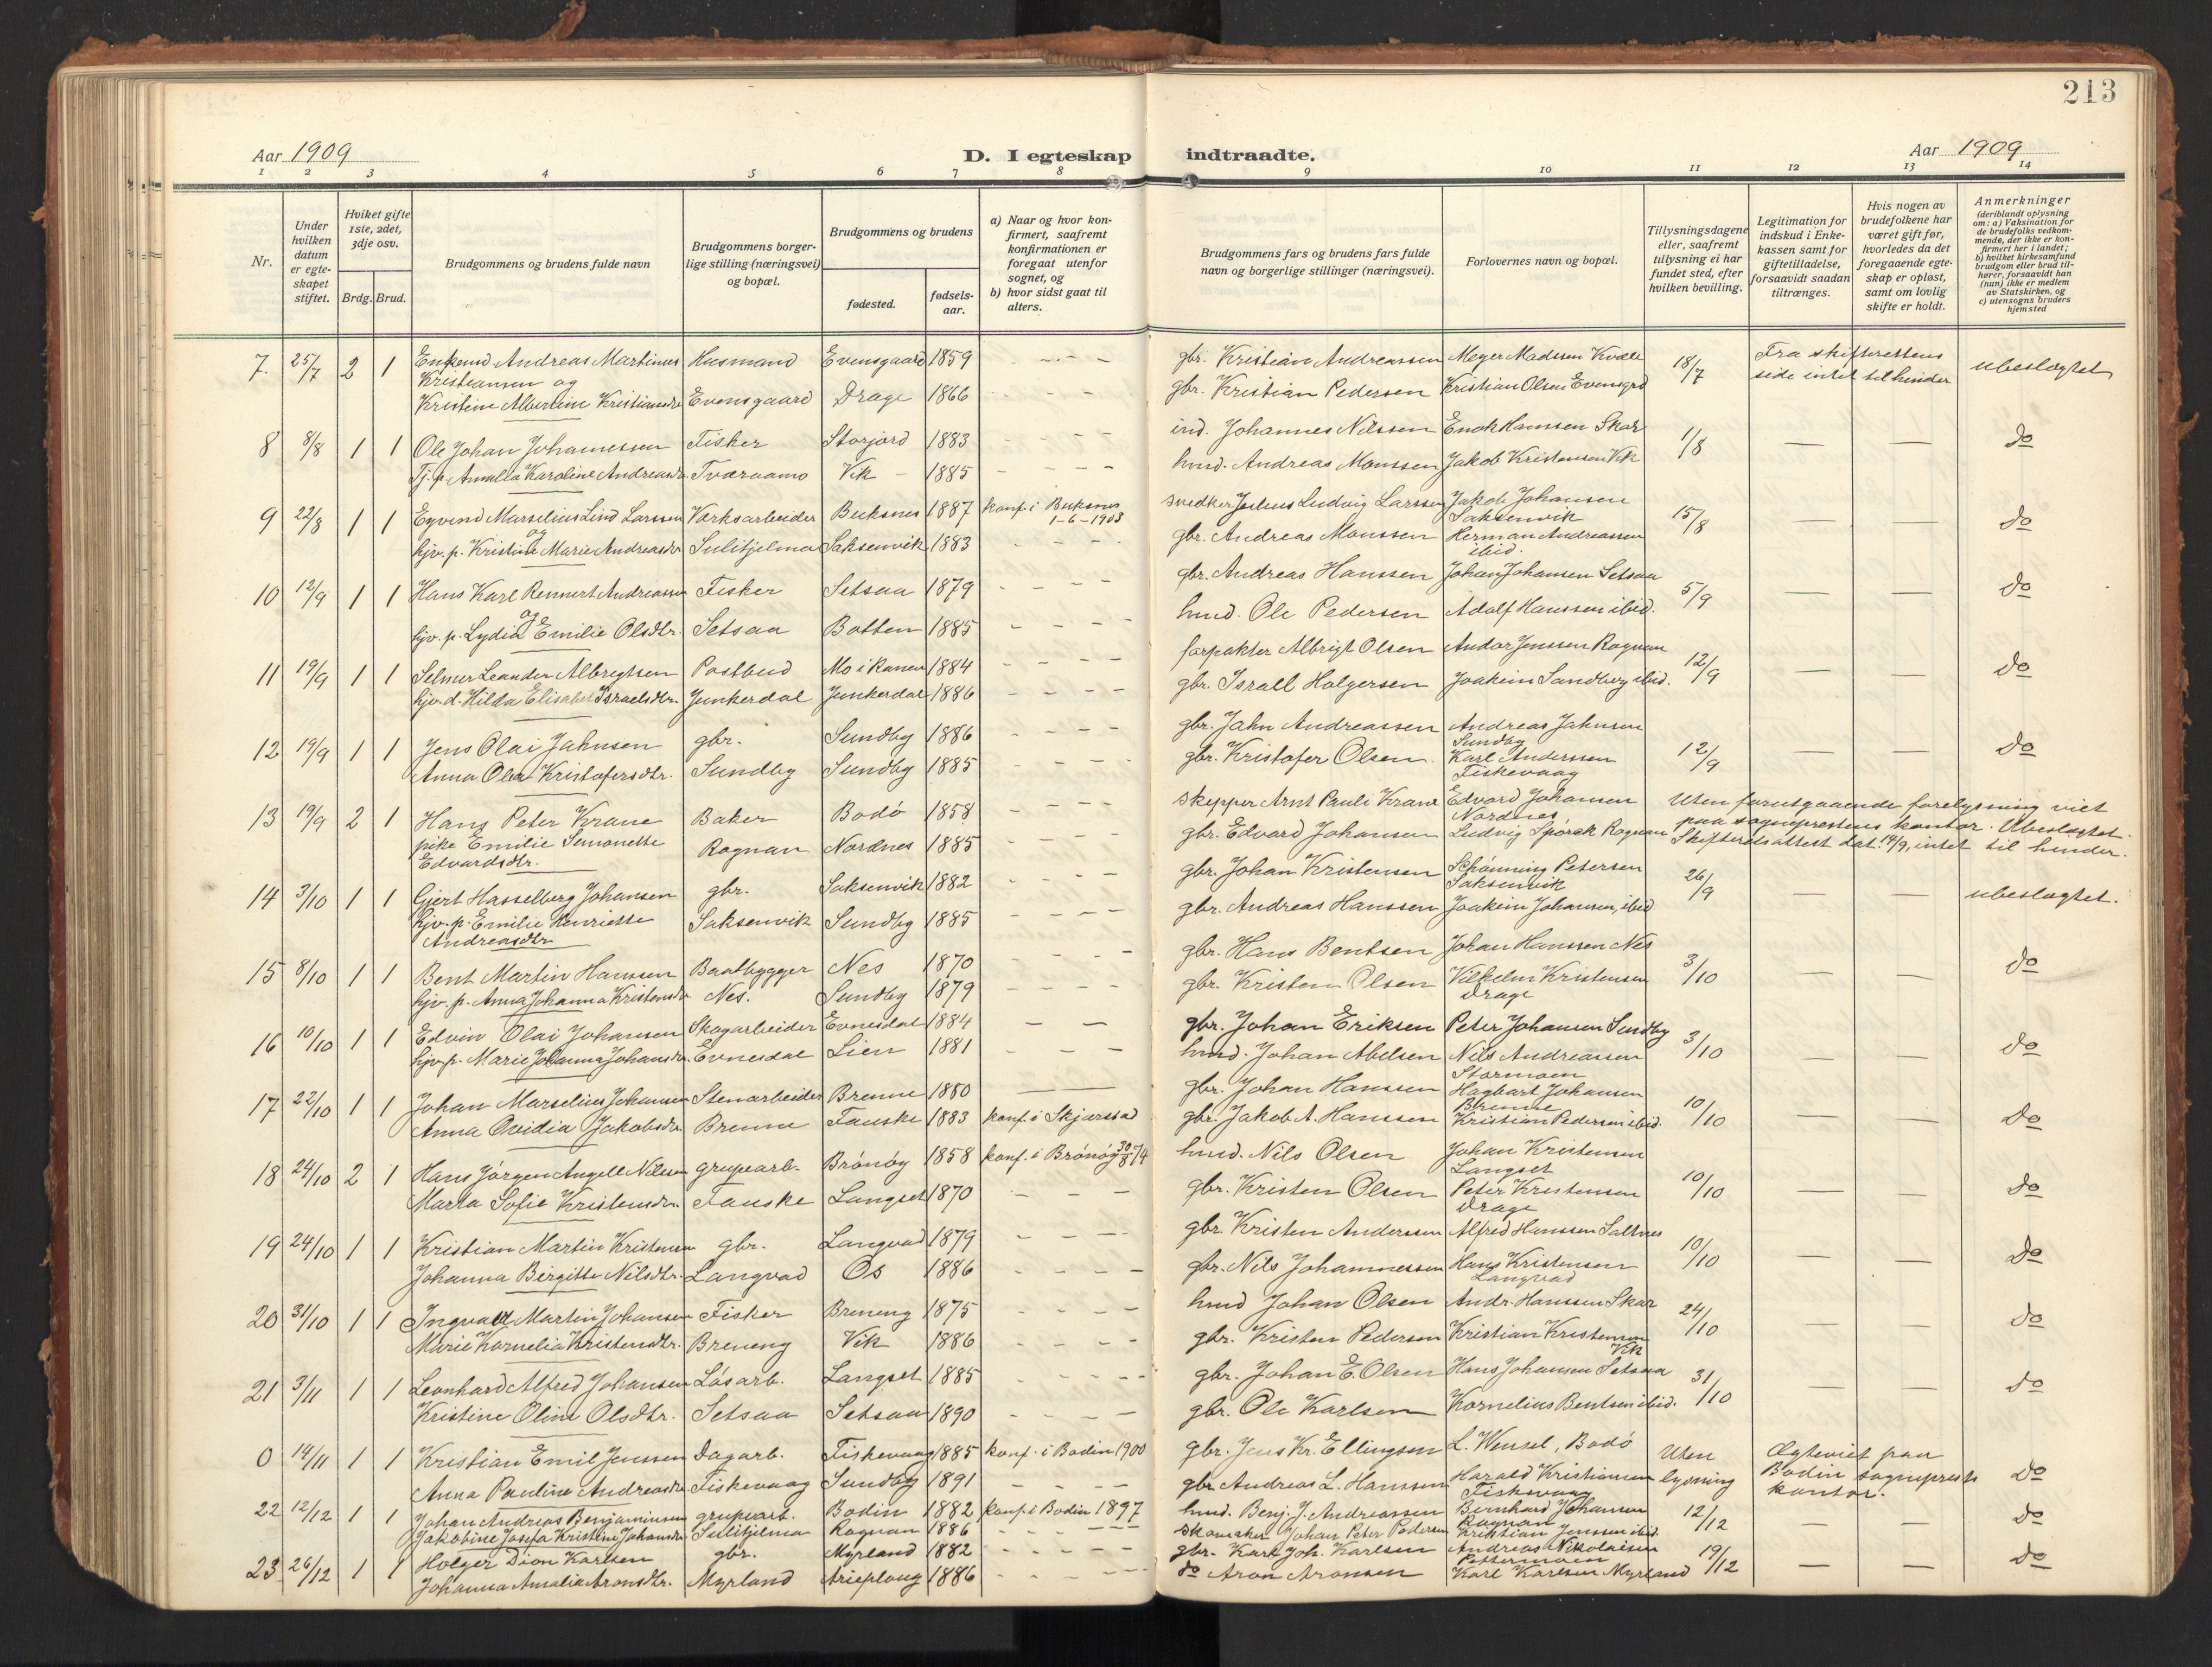 213
Aar 1909
D. I egteskap indtraadte.
Aar 1909
1 2 3 4 5 6 7 8 9 10 11 12 13 14
Nr.
Under hvilken datum er egteskapet stiftet.
Hviket gifte 1ste, 2det, 3dje osv.
Brdg. Brud.
Brudgommens og brudens fulde navn
Brudgommens borgerlige stilling (næringsvei) og bopæl.
Brudgommens og brudens
fødested.
fødselsaar.
a) Naar og hvor konfirmert, saafremt konfirmationen er foregaat utenfor sognet, og
b) hvor sidst gaat til alters.
Brudgommens fars og brudens fars fulde navn og borgerlige stillinger (næringsvei).
Forlovernes navn og bopæl.
Tillysningsdagene eller, saafremt tillysning ei har fundet sted, efter hvilken bevilling.
Legitimation for indskud i Enkekassen samt for giftetilladelse, forsaavidt saadan tiltrænges.
Hvis nogen av brudefolkene har været gift før, hvorledes da det foregaaende egteskap er opløst, samt om lovlig skifte er holdt.
Anmerkninger
(deriblandt oplysning om: a) Vaksination for de brudefolks vedkommende, der ikke er konfirmert her i landet; b) hvilket kirkesamfund brudgom eller brud tilhører, forsaavidt han (hun) ikke er medlem av Statskirken, og c) utensogns bruders hjemsted
7. 25/7 2 1 Enkemd Andreas Martinus Husmand Evensgaard 1859 gbr. Kristian Andreassen Meyer Madssen Kvæle 18/7 Fra skifterettens ubeslegtet
Kristiansen og side intet til hinder
Kristine Albertine Kristiansdr Evensgaard Drage 1866 gbr. Kristian Pedersen Kristian Olsen Evensgrd
8 8/8 1 1 Ole Johan Johannessen Fisker Storjord 1883 ind. Johannes Nilssen Enok Hanssen Skar 1/8 — — do
Tj. p. Amalia Karoline Andreasdr. Tværaamo Vik 1885 hmd. Andreas Monssen Jakob Kristensen Vik
9 22/8 1 1 Eyvind Marselius Lind Larssen Værksarbeider Buksnes 1887 konf. i Buksnes snedker Julius Ludvig Larssen Jakob Johansen 15/8 — — do
og 1-6-1903 Saksenvik
hjv. p. Kristine Marie Andreasdr Sulitjelma Saksenvik 1883 gbr. Andreas Monssen Herman Andreassen
ibid.
10 12/9 1 1 Hans Karl Rennert Andreassen Fisker Setsaa 1879 gbr. Andreas Hanssen Johan Johansen Setsaa 5/9 — — do
og
hjv. p. Lydia Emilie Olsdtr. Setsaa Botten 1885 hmd. Ole Pedersen Adolf Hanssen ibid.
11 19/9 1 1 Selmer Leander Albregtsen Postbud Mo i Ranen 1884 forpakter Albrigt Olsen Andor Jenssen Rognan 12/9 — — do
hjv. d. Hilda Elisabet Israelsdtr. Junkerdal Junkerdal 1886 gbr. Israll Holgersen Joakim Sandberg ibid.
12 19/9 1 1 Jens Olai Jahnsen gbr. Sundby 1886 gbr. Jahn Andreassen Andreas Jahnsen 12/9 — — do
Sundby
Anna Olea Kristofersdtr. Sundby Sundby 1885 gbr. Kristofer Olsen Karl Anderssen
Fiskevaag
13 19/9 2 1 Hans Peter Krane Baker Bodó 1858 skipper Arnt Pauli Krane Edvard Johansen Uten forutgaaende forelysning viet
Nordnes paa sogneprestens kontor. Ubeslegtet.
pike Emilie Simonette Rognan Nordnes 1885 gbr. Edvard Johansen Ludvig Spörck Rognan Skifteretsattest dat. 14/9, intet til hinder.
Edvardsdtr.
14 3/10 1 1 Gjert Hasselberg Johansen gbr. Saksenvik 1882 gbr. Johan Kristensen Schønning Petersen 26/9 — — ubeslegtet.
Saksenvik
hjv. p. Emilie Henriette Saksenvik Sundby 1885 gbr. Andreas Hanssen Joakim Johansen, ibid
Andreasdtr
15 8/10 1 1 Bent Martin Hanssen Baatbygger Nes 1870 gbr. Hans Bentsen Johan Hanssen Nes 3/10 — — do
hjv. p. Anna Johanna Kristensdr Nes. Sundby 1879 gbr. Kristen Olsen Vilhelm Kristensen
Drage
16 10/10 1 1 Edvin Olai Johansen Skogarbeider Evnesdal 1884 gbr. Johan Eriksen Peter Johansen Sundby 3/10 — — do
hjv. p. Marie Johanna Johansdr Evnesdal Lien 1881 hmd. Johan Abelsen Nils Andreassen
Stormoen
17 22/10 1 1 Johan Marselius Johansen Stenarbeider Brenne 1880 gbr. Johan Hanssen Hagbart Johansen 10/10 — — do
Brenne
Anna Ovidia Jakobsdr Brenne Fauske 1883 konf. i Skjærstad gbr. Jakob A. Hanssen Kristian Pedersen ibid.
18 24/10 2 1 Hans Jörgen Angell Nilsen grupearb. Brónóy 1858 konf. i Brónóy 30/8 74 hmd. Nils Olsen Johan Kristensen 10/10 — — do
Langset
Marta Sofie Kristensdr. Fauske Langset 1870 gbr. Kristen Olsen Peter Kristensen
Drage
19 24/10 1 1 Kristian Martin Kristensen gbr. Langvad 1879 gbr. Kristen Andersen Alfred Hanssen Saltnes 10/10 — — do
Johanna Birgitte Nilsdtr. Langvad Os 1886 gbr. Nils Johannessen Hans Kristensen
Langvad
20 31/10 1 1 Ingvald Martin Johansen Fisker Breneng 1875 hmd Johan Olsen Andr. Hanssen Skar 24/10 — — do
Marie Kornelia Kristensdtr. Breneng Vik 1886 gbr. Kristen Pedersen Kristian Kristensen
Vik
21 3/11 1 1 Leonhard Alfred Johansen Lósarb. Langset 1885 gbr. Johan E. Olsen Hans Johansen Setsaa 31/10 — — do
Kristine Oline Olsdtr. Setsaa Setsaa 1890 gbr. Ole Karlsen Kornelius Bentsen ibid.
0 14/11 1 1 Kristian Emil Jenssen Dagarb. Fiskevaag 1885 konf. i Bodin 1900 gbr. Jens Kr. Ellingsen L. Wensel, Bodó Uten Ægteviet paa do
Anna Pauline Andreasdr. Fiskevaag Sundby 1891 gbr Andreas L. Hanssen Harald Kristiansen lysning Bodin sogneprests
Fiskevaag kontor.
22 12/12 1 1 Johan Andreas Benjaminsen grupearb. Bodin 1882 konf. i Bodin 1897 hmd. Benj. J. Andreassen Bernhard Johansen 12/12 — — do
Rognan
Jakobine Josefa Kristine Johansdr Sulitjelma Rognan 1886 skomaker Johan Peter Pedersen Kristian Jenssen ibid.
23 26/12 1 1 Holger Dion Karlsen gbr. Myrland 1882 gbr. Karl Joh. Karlsen Andreas Nikolaisen 19/12 — — do
Pettermoen
Johanna Amalia Aronsdtr. Myrland Arieploug 1886 do Aron Aronsen Karl Karlsen Myrland